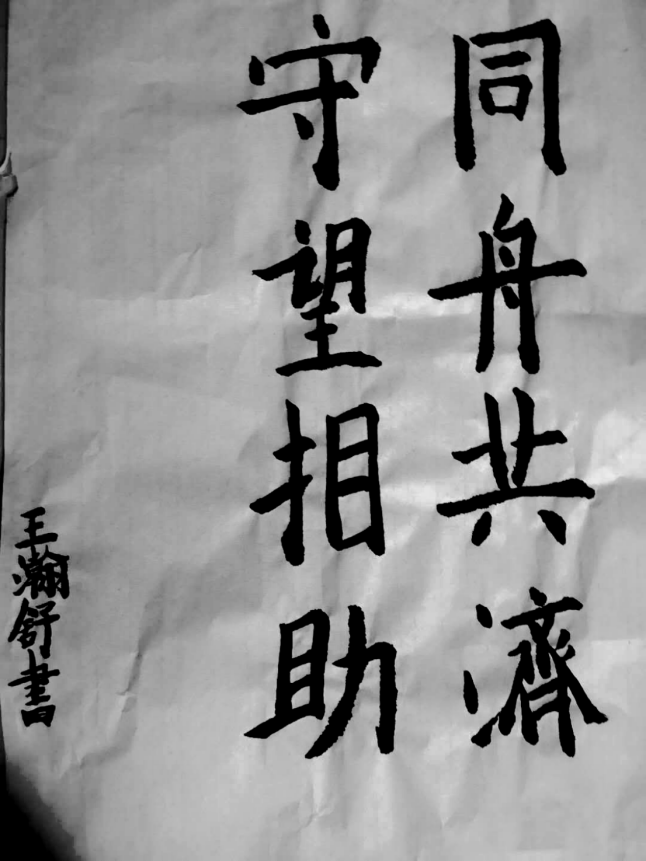 同舟共濟
守望相助
王瀚舒書